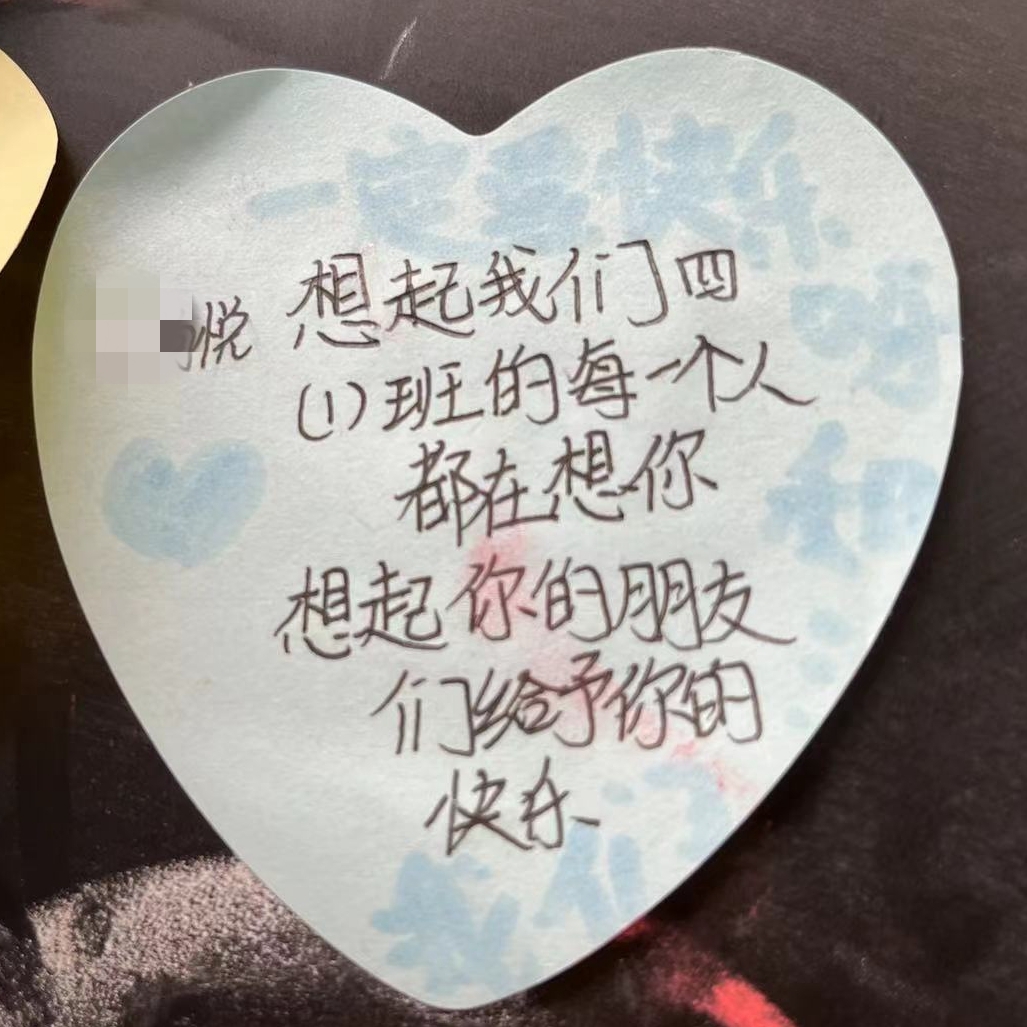 一定要快乐
悦
想起我们四
(1)班的每一个人
都在想你
想起你的朋友
们给予你的
快乐
我们